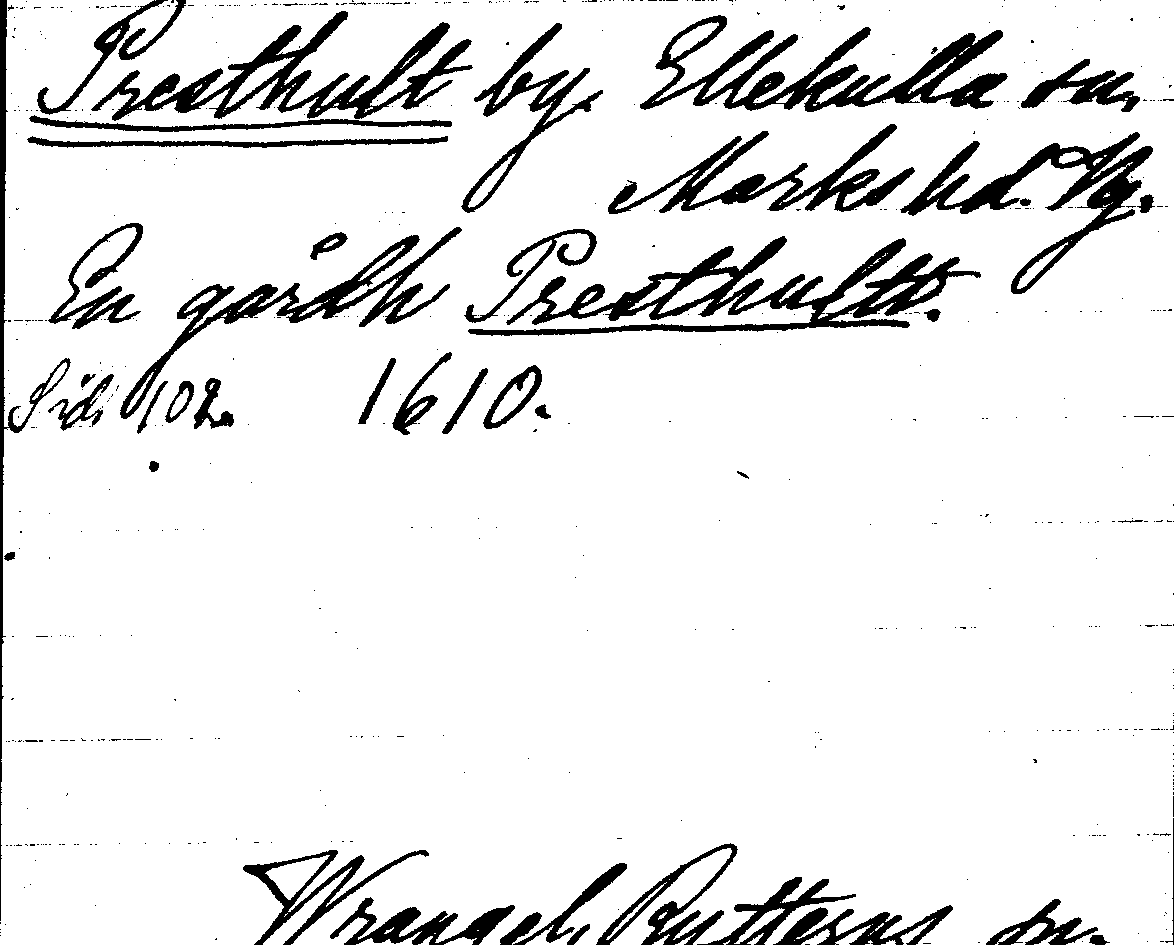 Presthult by. Ellekulla sn,
Marks hd. Vg.
En gårdh Presthultt.
Sid. 102. 1610.
Wrangel, Rytterns sn.